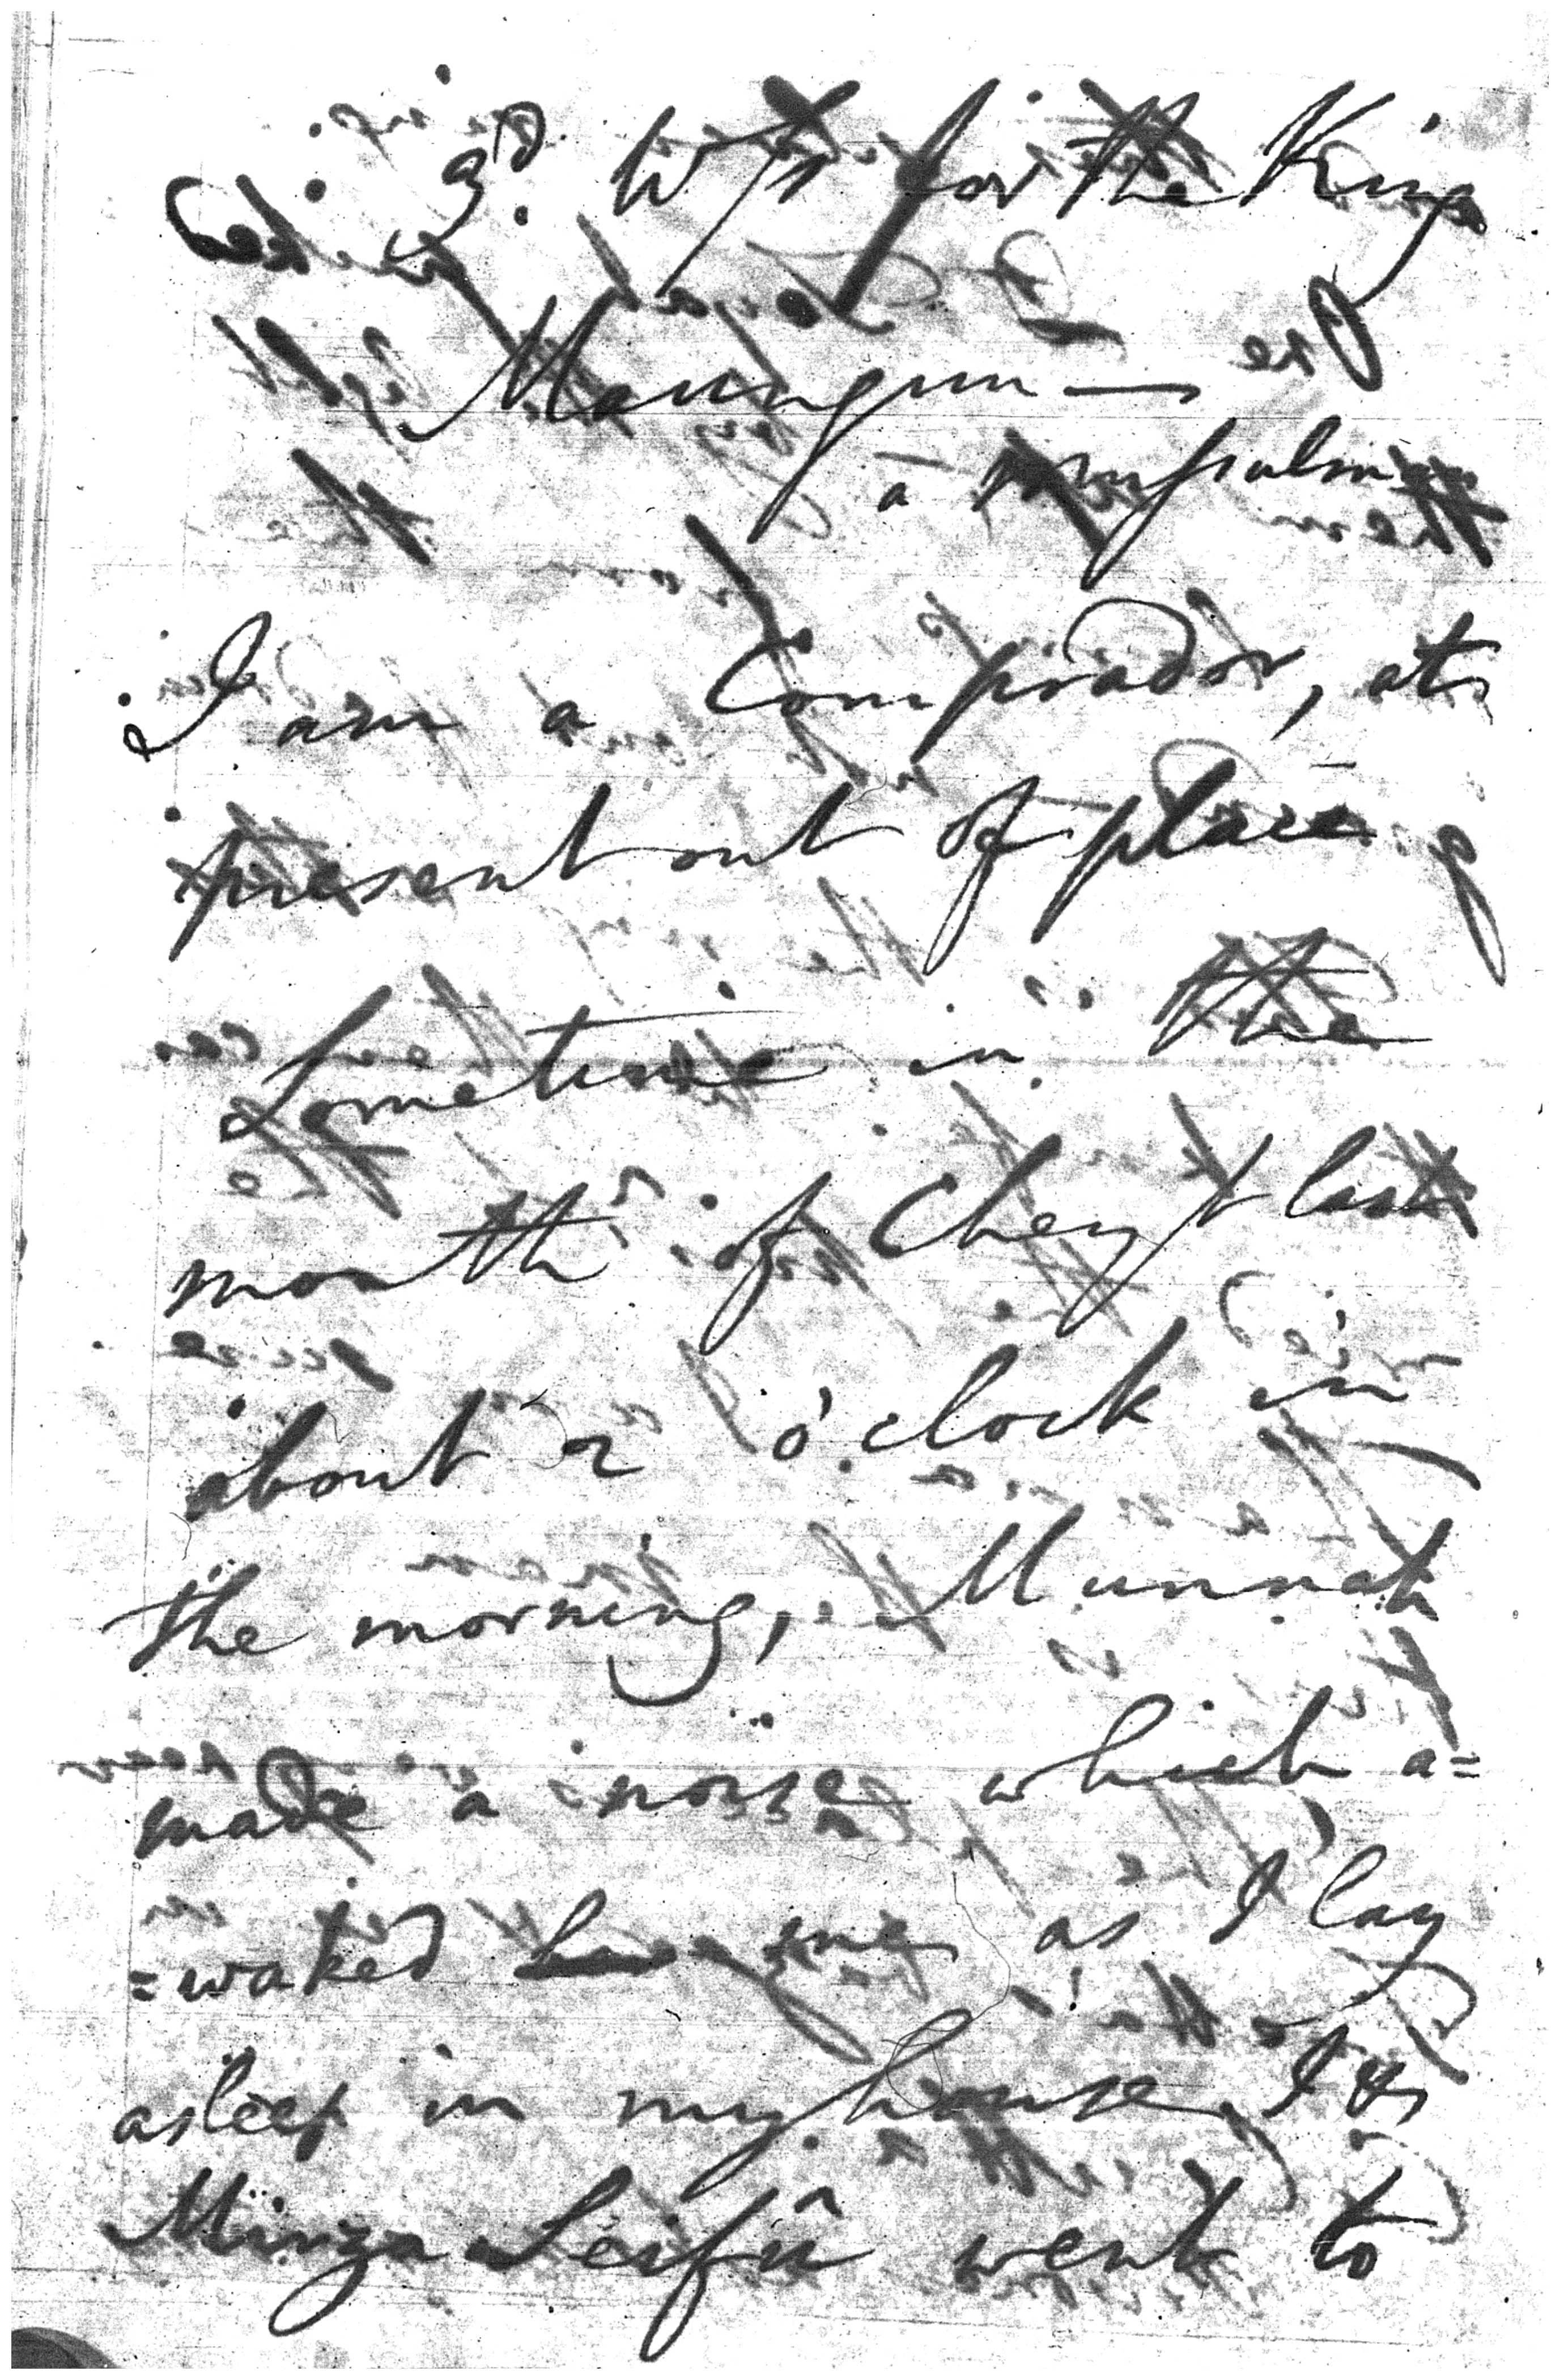 3d. Wss for the King
Maungun —
a mussulman
I am a Comprador, at
present out of place
Sometime in the
month of Cheyt last
about 2 o'clock in
the morning, Munnah
made a noise which a=
=waked me as I lay
asleep in my house, I &
Mirza Seifû went to